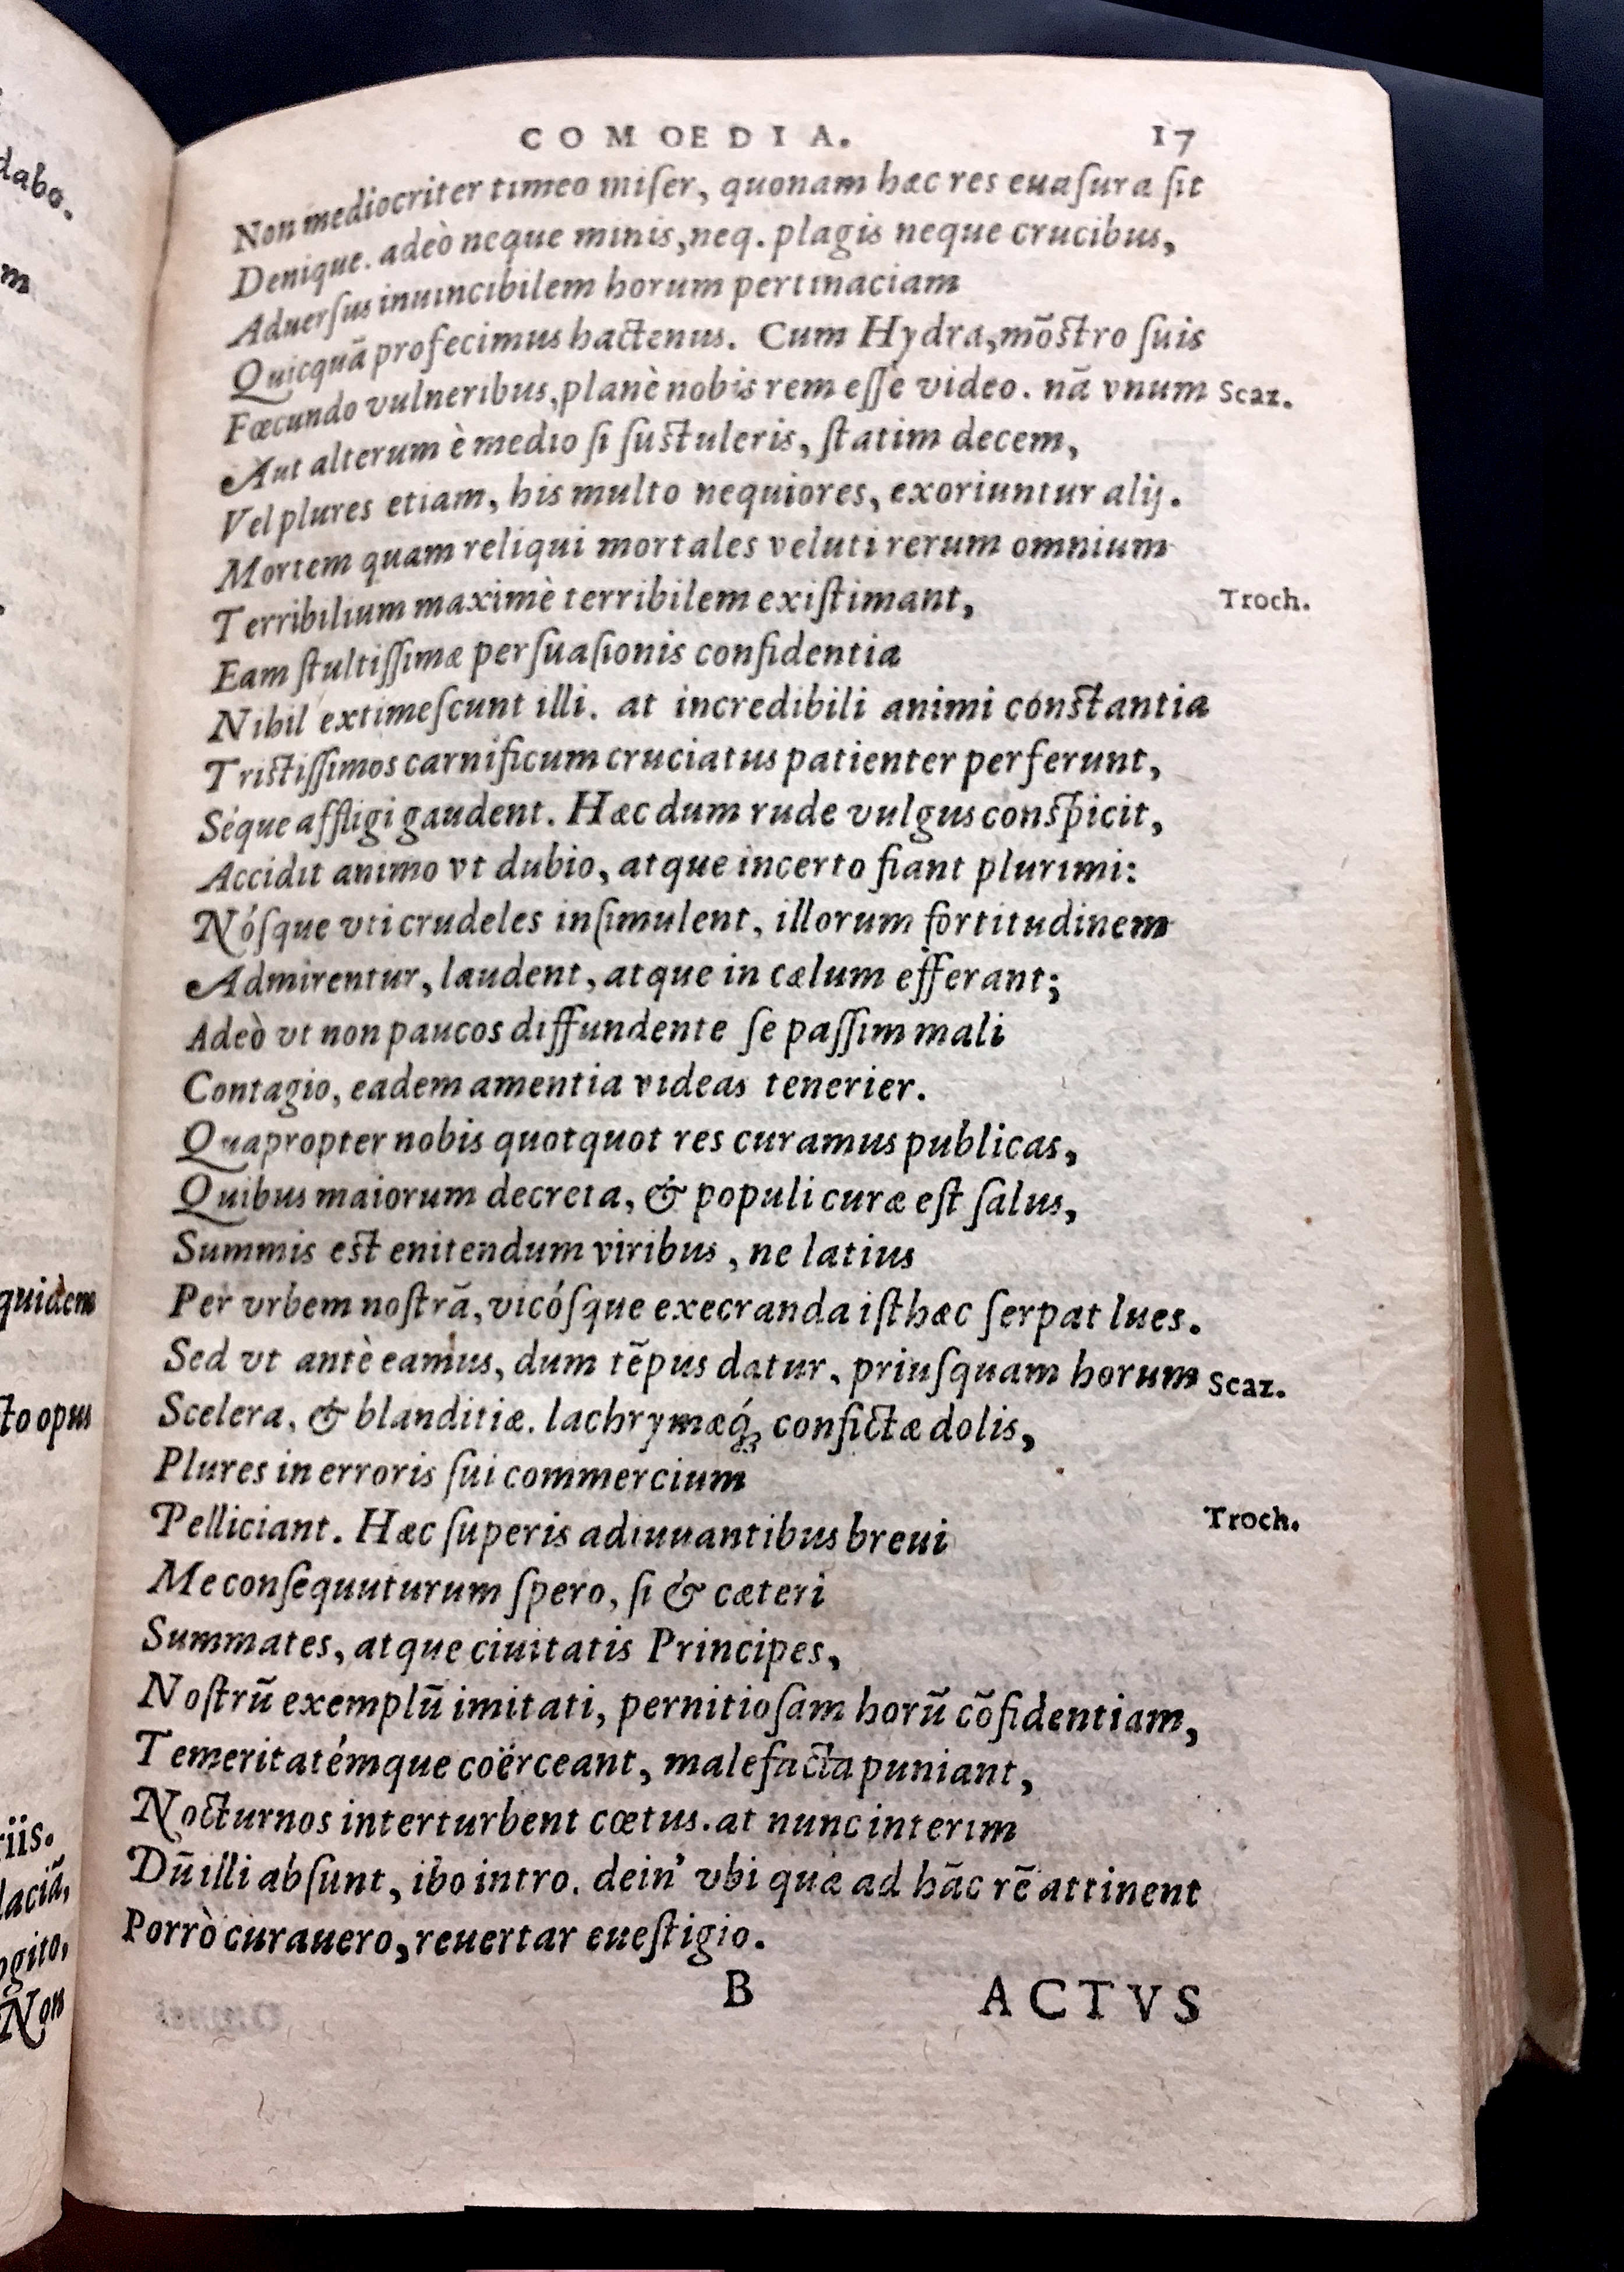 COMOEDIA. 17
Non mediocriter timeo miſer, quonam hæc res euaſura ſit
Denique. adeò neque minis, neq. plagis neque crucibus,
Aduerſus inuincibilem horum pertinaciam
Quicquã profecimus hactenus. Cum Hydra, mõſtro ſuis
Fœcundo vulneribus, planè nobis rem eſſe video. nã vnum Scaz.
Aut alterum è medio ſi ſuſtuleris, ſtatim decem,
Vel plures etiam, his multo nequiores, exoriuntur alij.
Mortem quam reliqui mortales veluti rerum omnium
Terribilium maximè terribilem exiſtimant, Troch.
Eam ſtultiſſimæ perſuaſionis confidentia
Nihil extimeſcunt illi. at incredibili animi conſtantia
Triſtiſſimos carnificum cruciatus patienter perferunt,
Séque affligi gaudent. Hæc dum rude vulgus conſpicit,
Accidit animo vt dubio, atque incerto fiant plurimi:
Nóſque vti crudeles inſimulent, illorum fortitudinem
Admirentur, laudent, atque in cælum efferant;
Adeò vt non paucos diffundente ſe paſſim mali
Contagio, eadem amentia videas tenerier.
Quapropter nobis quotquot res curamus publicas,
Quibus maiorum decreta, & populi curæ eſt ſalus,
Summis eſt enitendum viribus, ne latius
Per vrbem noſtrã, vicóſque execranda iſthæc ſerpat lues.
Sed vt antè eamus, dum tẽpus datur, priuſquam horum Scaz.
Scelera, & blanditiæ. lachrymæq́ꝫ confictæ dolis,
Plures in erroris ſui commercium
Pelliciant. Hæc ſuperis adiuuantibus breui Troch.
Me conſequuturum ſpero, ſi & cæteri
Summates, atque ciuitatis Principes,
Noſtrũ exemplũ imitati, pernitioſam horũ cõfidentiam,
Temeritatémque coërceant, malefacta puniant,
Nocturnos interturbent cœtus. at nunc interim
Dũ illi abſunt, ibo intro. dein' vbi quæ ad hãc rẽ attinent
Porrò curauero, reuertar eueſtigio.
B ACTVS
dabo.
m
quidem
to opus
riis.
laciã,
ogito,
Non